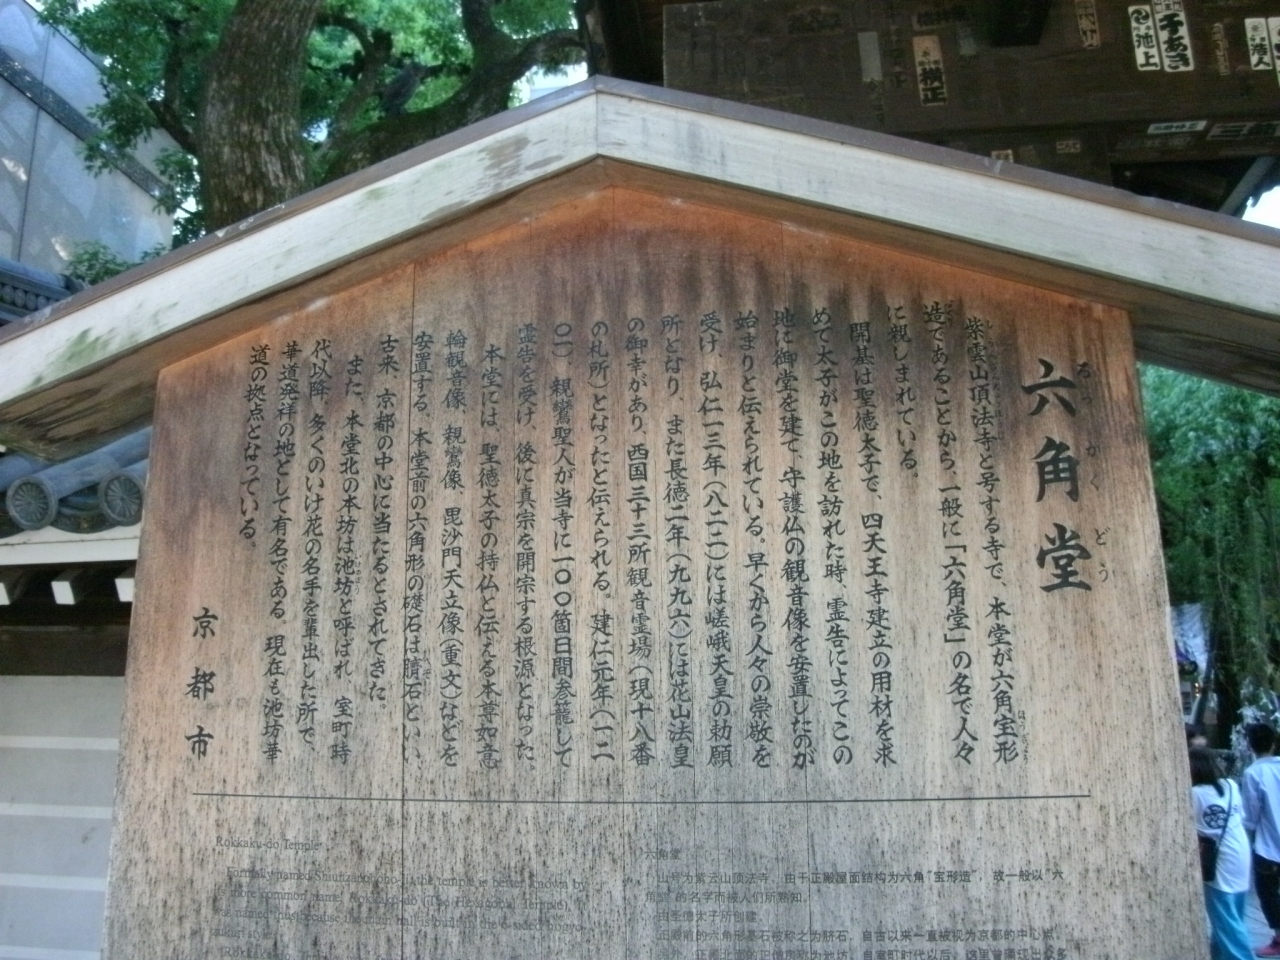 六角堂
ろっかくどう
紫雲山頂法寺と号する寺で、本堂が六角宝形
造であることから、一般に「六角堂」の名で人々
に親しまれている。
開基は聖徳太子で、四天王寺建立の用材を求
めて太子がこの地を訪れた時、霊告によってこの
地に御堂を建て、守護仏の観音像を安置したのが
始まりと伝えられている。早くから人々の崇敬を
受け、弘仁一三年(八二二)には嵯峨天皇の勅願
所となり、また長徳二年(九九六)には花山法皇
の御幸があり、西国三十三所観音霊場(現十八番
の札所)となったと伝えられる。建仁元年(一二
〇一)親鸞聖人が当寺に一〇〇箇日間参籠して
霊告を受け、後に真宗を開宗する根源となった。
本堂には、聖徳太子の持仏と伝える本尊如意
輪観音像、親鸞像、毘沙門天立像(重文)などを
安置する。本堂前の六角形の礎石は臍石といい、
古来、京都の中心に当たるとされてきた。
また、本堂北の本坊は池坊と呼ばれ、室町時
代以降、多くのいけ花の名手を輩出した所で、
華道発祥の地として有名である。現在も池坊華
道の拠点となっている。
京都市
Rokkaku-do Temple
Formally named
the temple is better known by
more common name, Rokkaku-do (The Hexagonal Temple)
named thus because the main hall is built in the 6-sided hogyo-
zukuri style.
六角堂
山号为紫云山顶法寺，由于正殿屋面结构为六角"宝形造"，故一般以"六
角堂"的名字而被人们所熟知。
由圣德太子所创建。
正殿前的六角形基石被称之为脐石，自古以来一直被视为京都的中心点。
千あき
池上
横正
港人